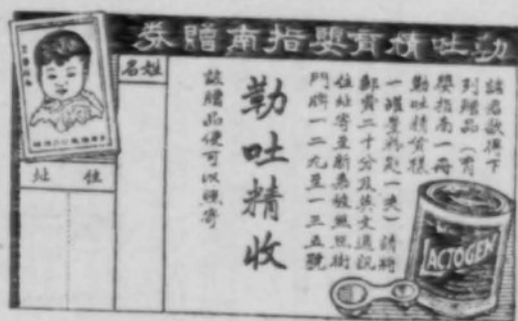 勒吐精育嬰指南贈券
諸君欲得下
列贈品(育
嬰指南一冊
勒吐精食樣
一罐量匙一)請將
郵費二十分及英文通訊
住址寄至新嘉坡街
門牌一二九至一三五號
勒吐精收
該贈品便可以照寄
姓名
住址
LACTOGEN